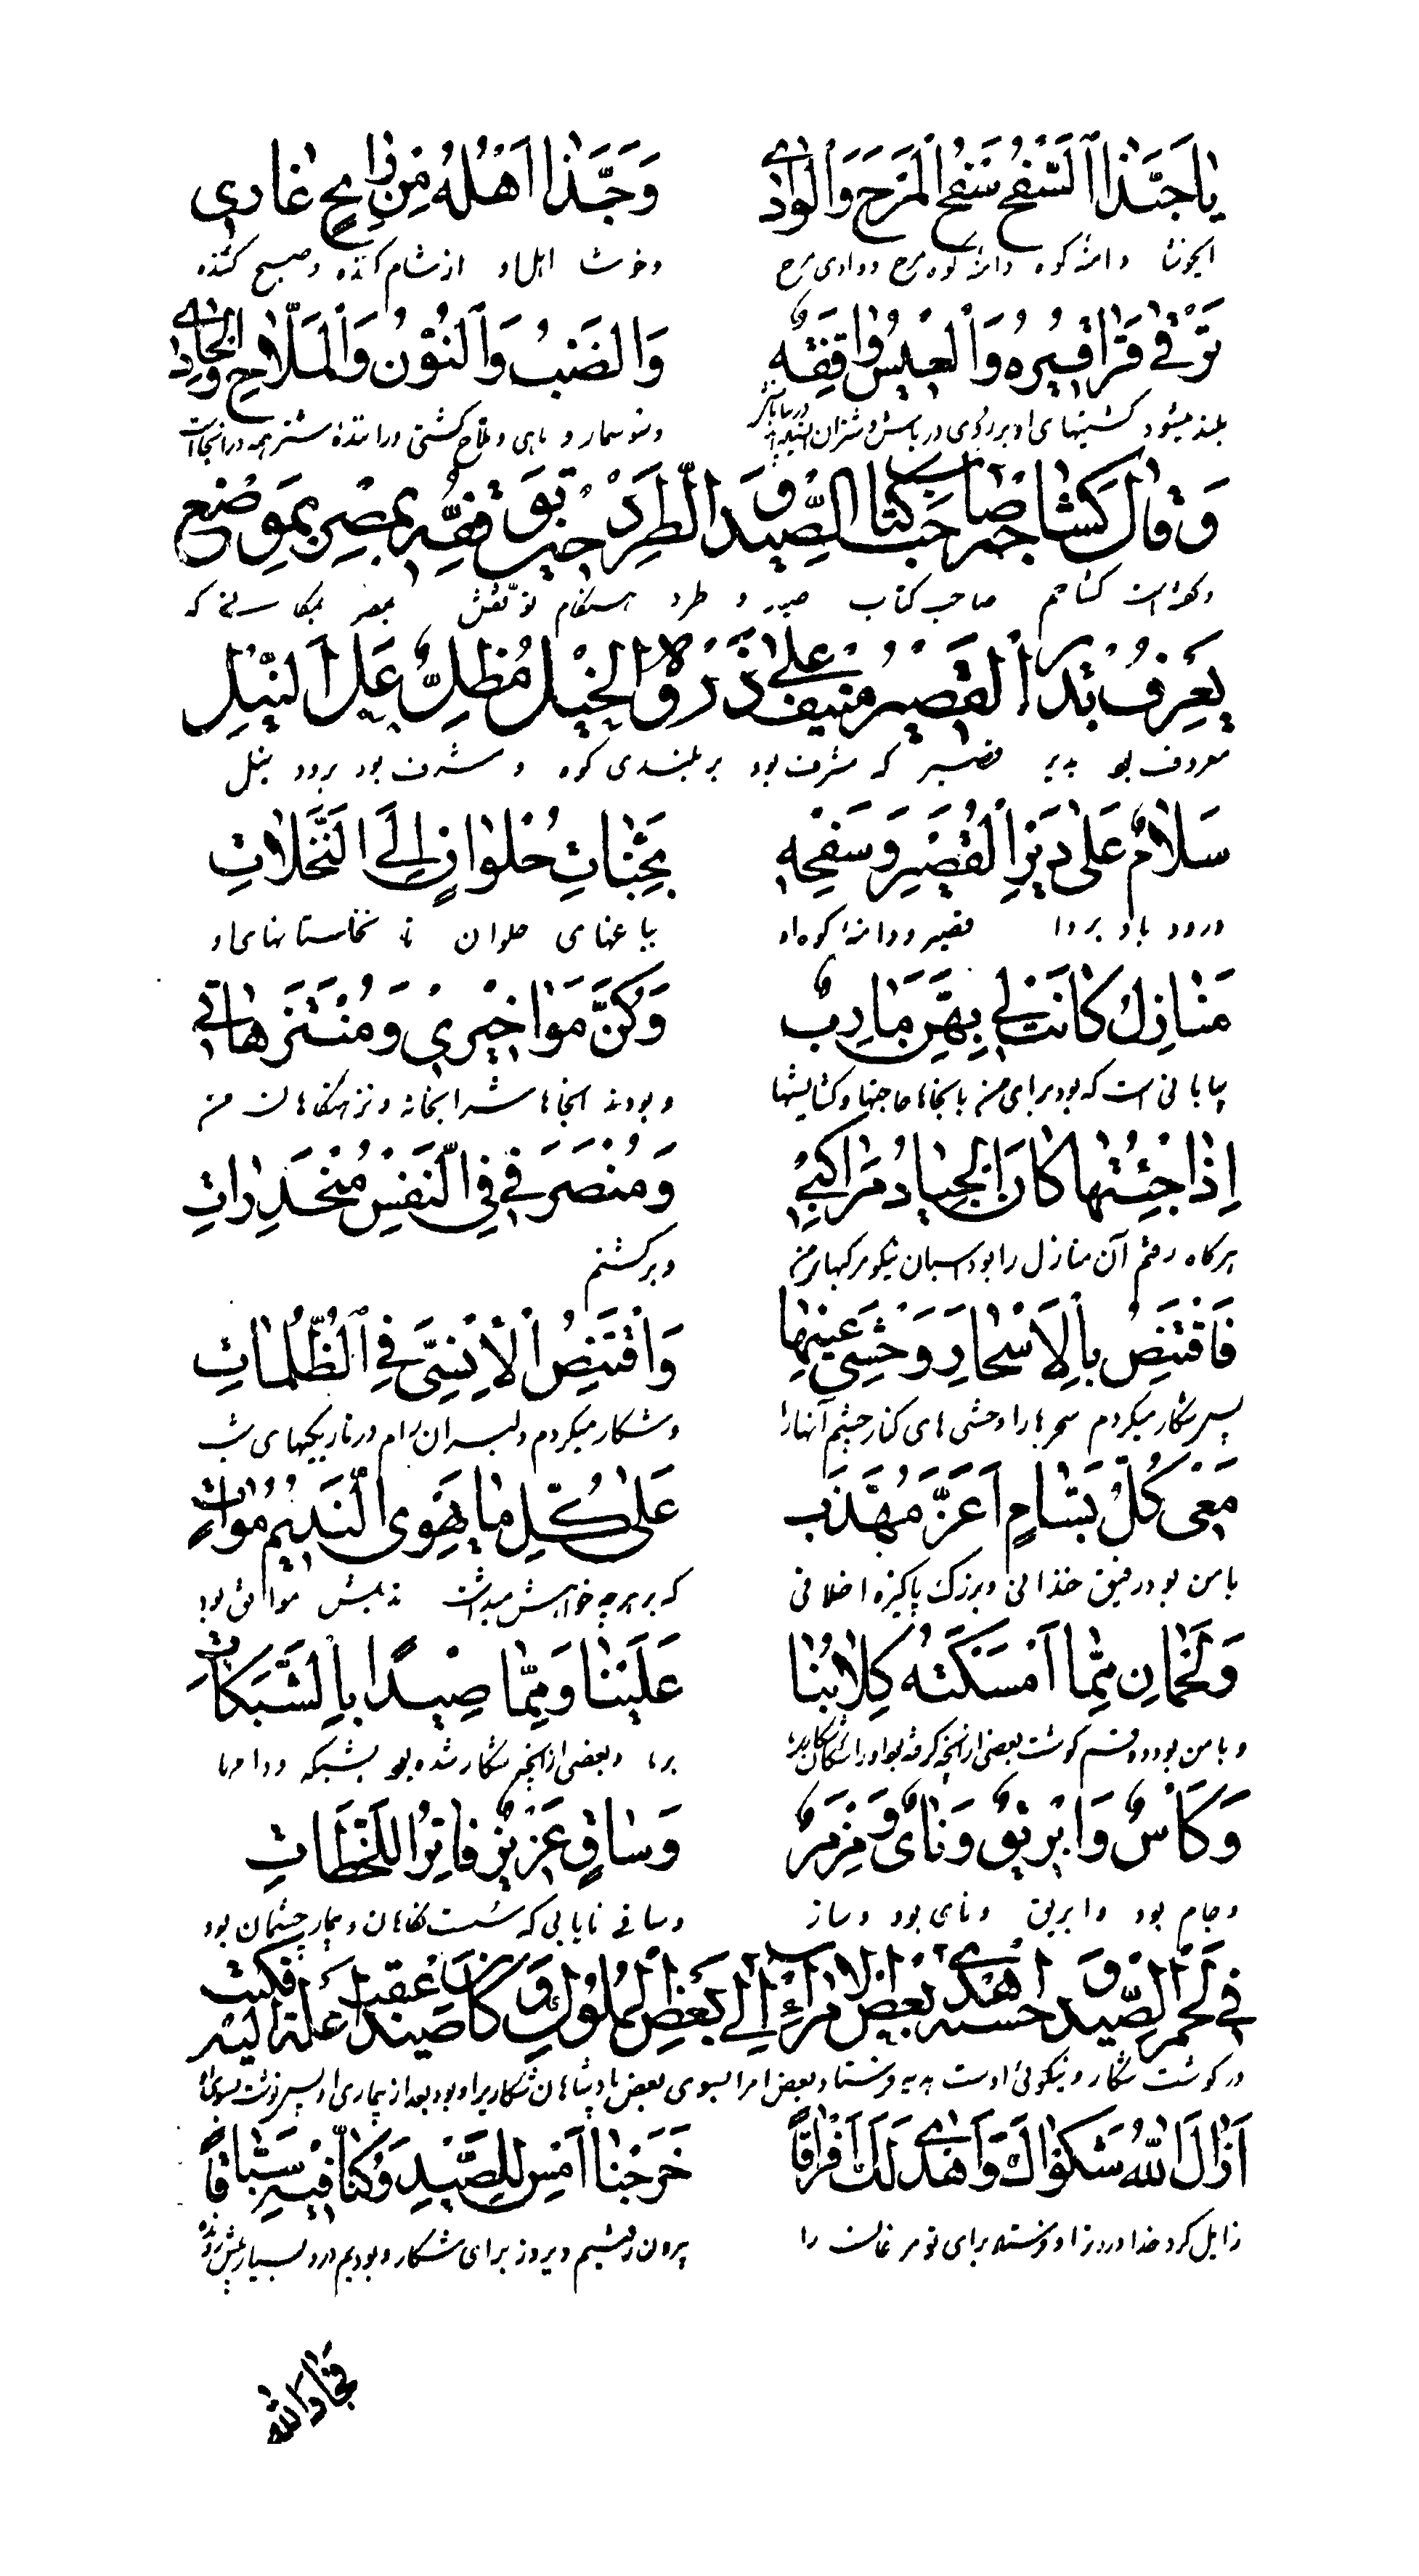 يا حَبَّذَا ٱلسَّفْحُ سَفْحُ ٱلْمَرْحِ وَٱلْوَادِي وَحَبَّذَا أَهْلُهُ مِنْ رَائِحٍ غَادِي
ایخوشا دامنه کوه دامنه کوه مرح و وادی مرح وخوشا اهل او از شام کننده و صبح کننده
تَرْقَى قَرَاقِيرُهُ وَٱلْعِيسُ وَاقِفَةٌ وَالضَبُّ وَٱلنُّونُ وَٱلْمَلَّاحُ وَالْحَادِي
بلند میشود کشتیهای او بزرگ وی در پایش و شتران وسوسمار و ماهی و ملاح کشتی و رانندهٔ شتر همه در آنجا است
وَقَالَ كَشَاجِمُ صَاحِبُ كِتَابِ الصَّيْدِ وَالطَّرَدِ حِينَ تَوَقَّفَهُ بِمِصْرَ بِمَوْضِعٍ
و گفته است کشاجم صاحب کتاب صید و طرد هنگام توقفش بمصر بمکانی که
يُعْرَفُ بِدَيْرِ ٱلْقُصَيْرِ مُنِيفٌ عَلَى ذَرْوَةِ الْجَبَلِ مُظِلٌّ عَلَى ٱلنِّيلِ
معروف بود بدیر قصیر که مشرف بود بر بلندی کوه و مشرف بود برود نیل
سَلَامٌ عَلَى دَيْرِ ٱلْقُصَيْرِ وَسَفْحِهِ بِجَنَّاتِ حُلْوَانٍ إِلَى ٱلنَّخَلَاتِ
درود باد بر دیر قصیر و دامنه کوه او بباغهای حلوان تا نخلستانهای او
مَنَازِلُ كَانَتْ لِي بِهِنَّ مَآرِبٌ وَكُنَّ مَوَاخِيرِي وَمُنْتَزَهَاتِي
که بود برای من بآنجاها حاجتها و بودند آنجاها شرابخانه و نزهتگاهان من
إِذَا جِئْتُهَا كَانَ الْجِيَادُ مَرَاكِبِي وَمُنْصَرَفِي فِي السُّفُنِ مُنْحَدِرَاتِ
هرگاه رفتم آن منازل را بود اسبان نیکو مرکبهای من و برگشتم
فَأَقْتَنِصُ بِالْأَسْحَارِ وَحْشِيَّ عِينِهَا وَأَقْتَنِصُ ٱلْإِنْسِيَّ فِي ٱلظُّلُمَاتِ
پس شکار میکردم سحرها را وحشی های آنها را و شکار میکردم دلبران رام در تاریکیهای شب
مَعِي كُلُّ بَسَّامٍ أَغَرَّ مُهَذَّبٍ عَلَى كُلِّ مَا يَهْوَى ٱلنَّدِيمُ مُوَاتِ
با من بود رفیق خندانی و بزرگ پاکیزه اخلاقی که بر هرچه خواهش میداشت ندیمش موافق بود
وَلَحْمَانِ مِمَّا أَمْسَكَتْهُ كِلَابُنَا عَلَيْنَا وَمِمَّا صِيدَ بِالشَّبَكَاتِ
و با من بود دو قسم گوشت بعضی از آنچه گرفته بود برما و بعضی از آنچه شکار شده بود بشبکه و دامها
وَكَأْسٌ وَإِبْرِيقٌ وَنَايٌ وَمِزْمَرٌ وَسَاقٍ عَزِيزٌ فَاتِرُ اللَّحَظَاتِ
و جام بود و ابریق و نای بود و ساز و ساقی نایابی که سست نگاهان و بیمار چشمان بود
فِي لَحْمِ ٱلصَّيْدِ وَحُسْنِهِ أَهْدَى بَعْضُ ٱلْأُمَرَاءِ إِلَى بَعْضِ ٱلْمُلُوكِ وَكَانَ صَيْدًا عَقِبَ عِلَّةٍ فَكَتَبَ إِلَيْهِ
در گوشت شکار و نیکوئی اوست هدیه فرستاد بعض امرا بسوی بعض پادشاهان شکاریرا و بود بعد از بیماری او پس نوشت بسوی او
أَزَالَ اللّٰهُ شَكْوَاكَ وَأَهْدَى لَكَ إِفْرَاقًا خَرَجْنَا أَمْسِ لِلصَّيْدِ وَكُنَّا فِيهِ سُبَّاقًا
زایل کرد خدا درد ترا و فرستاد برای تو را بیرون رفتیم دیروز برای شکار و بودیم در او بسیار پیش رونده